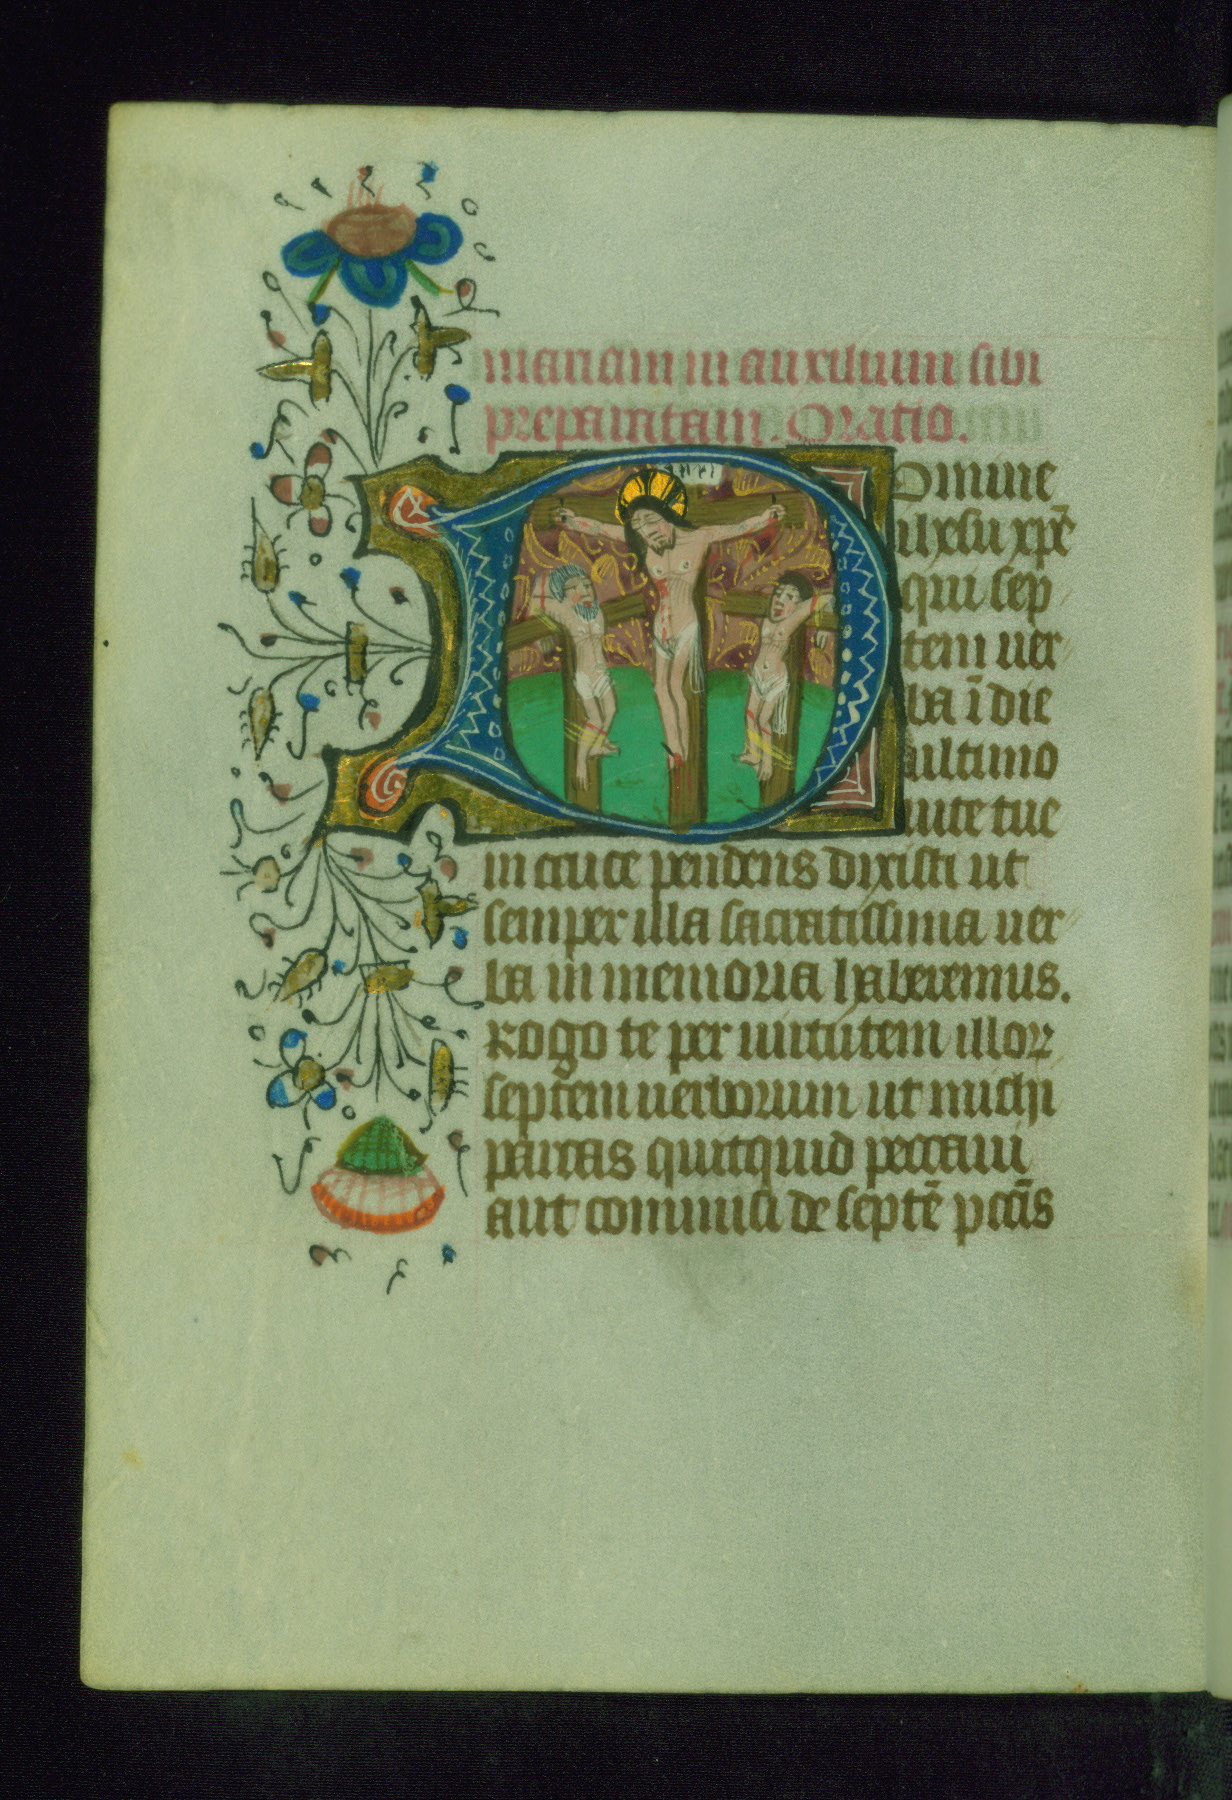 mariam in auxilium sibi
preparatam. Oratio.
Domine
ihesu xpē
qui sep
tem uer
ba ī die
ultimo
uite tue
in cruce pendens dixisti ut
semper illa sacratissima uer
ba in memoria haberemus.
Rogo te per uirtutem illoꝝ
septem uerborum ut michi
parcas quitquid peccaui
aut commisi de septē pccīs